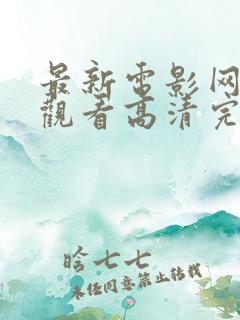 最新電影网
觀看高清完
晗七七
未经同意禁止转载